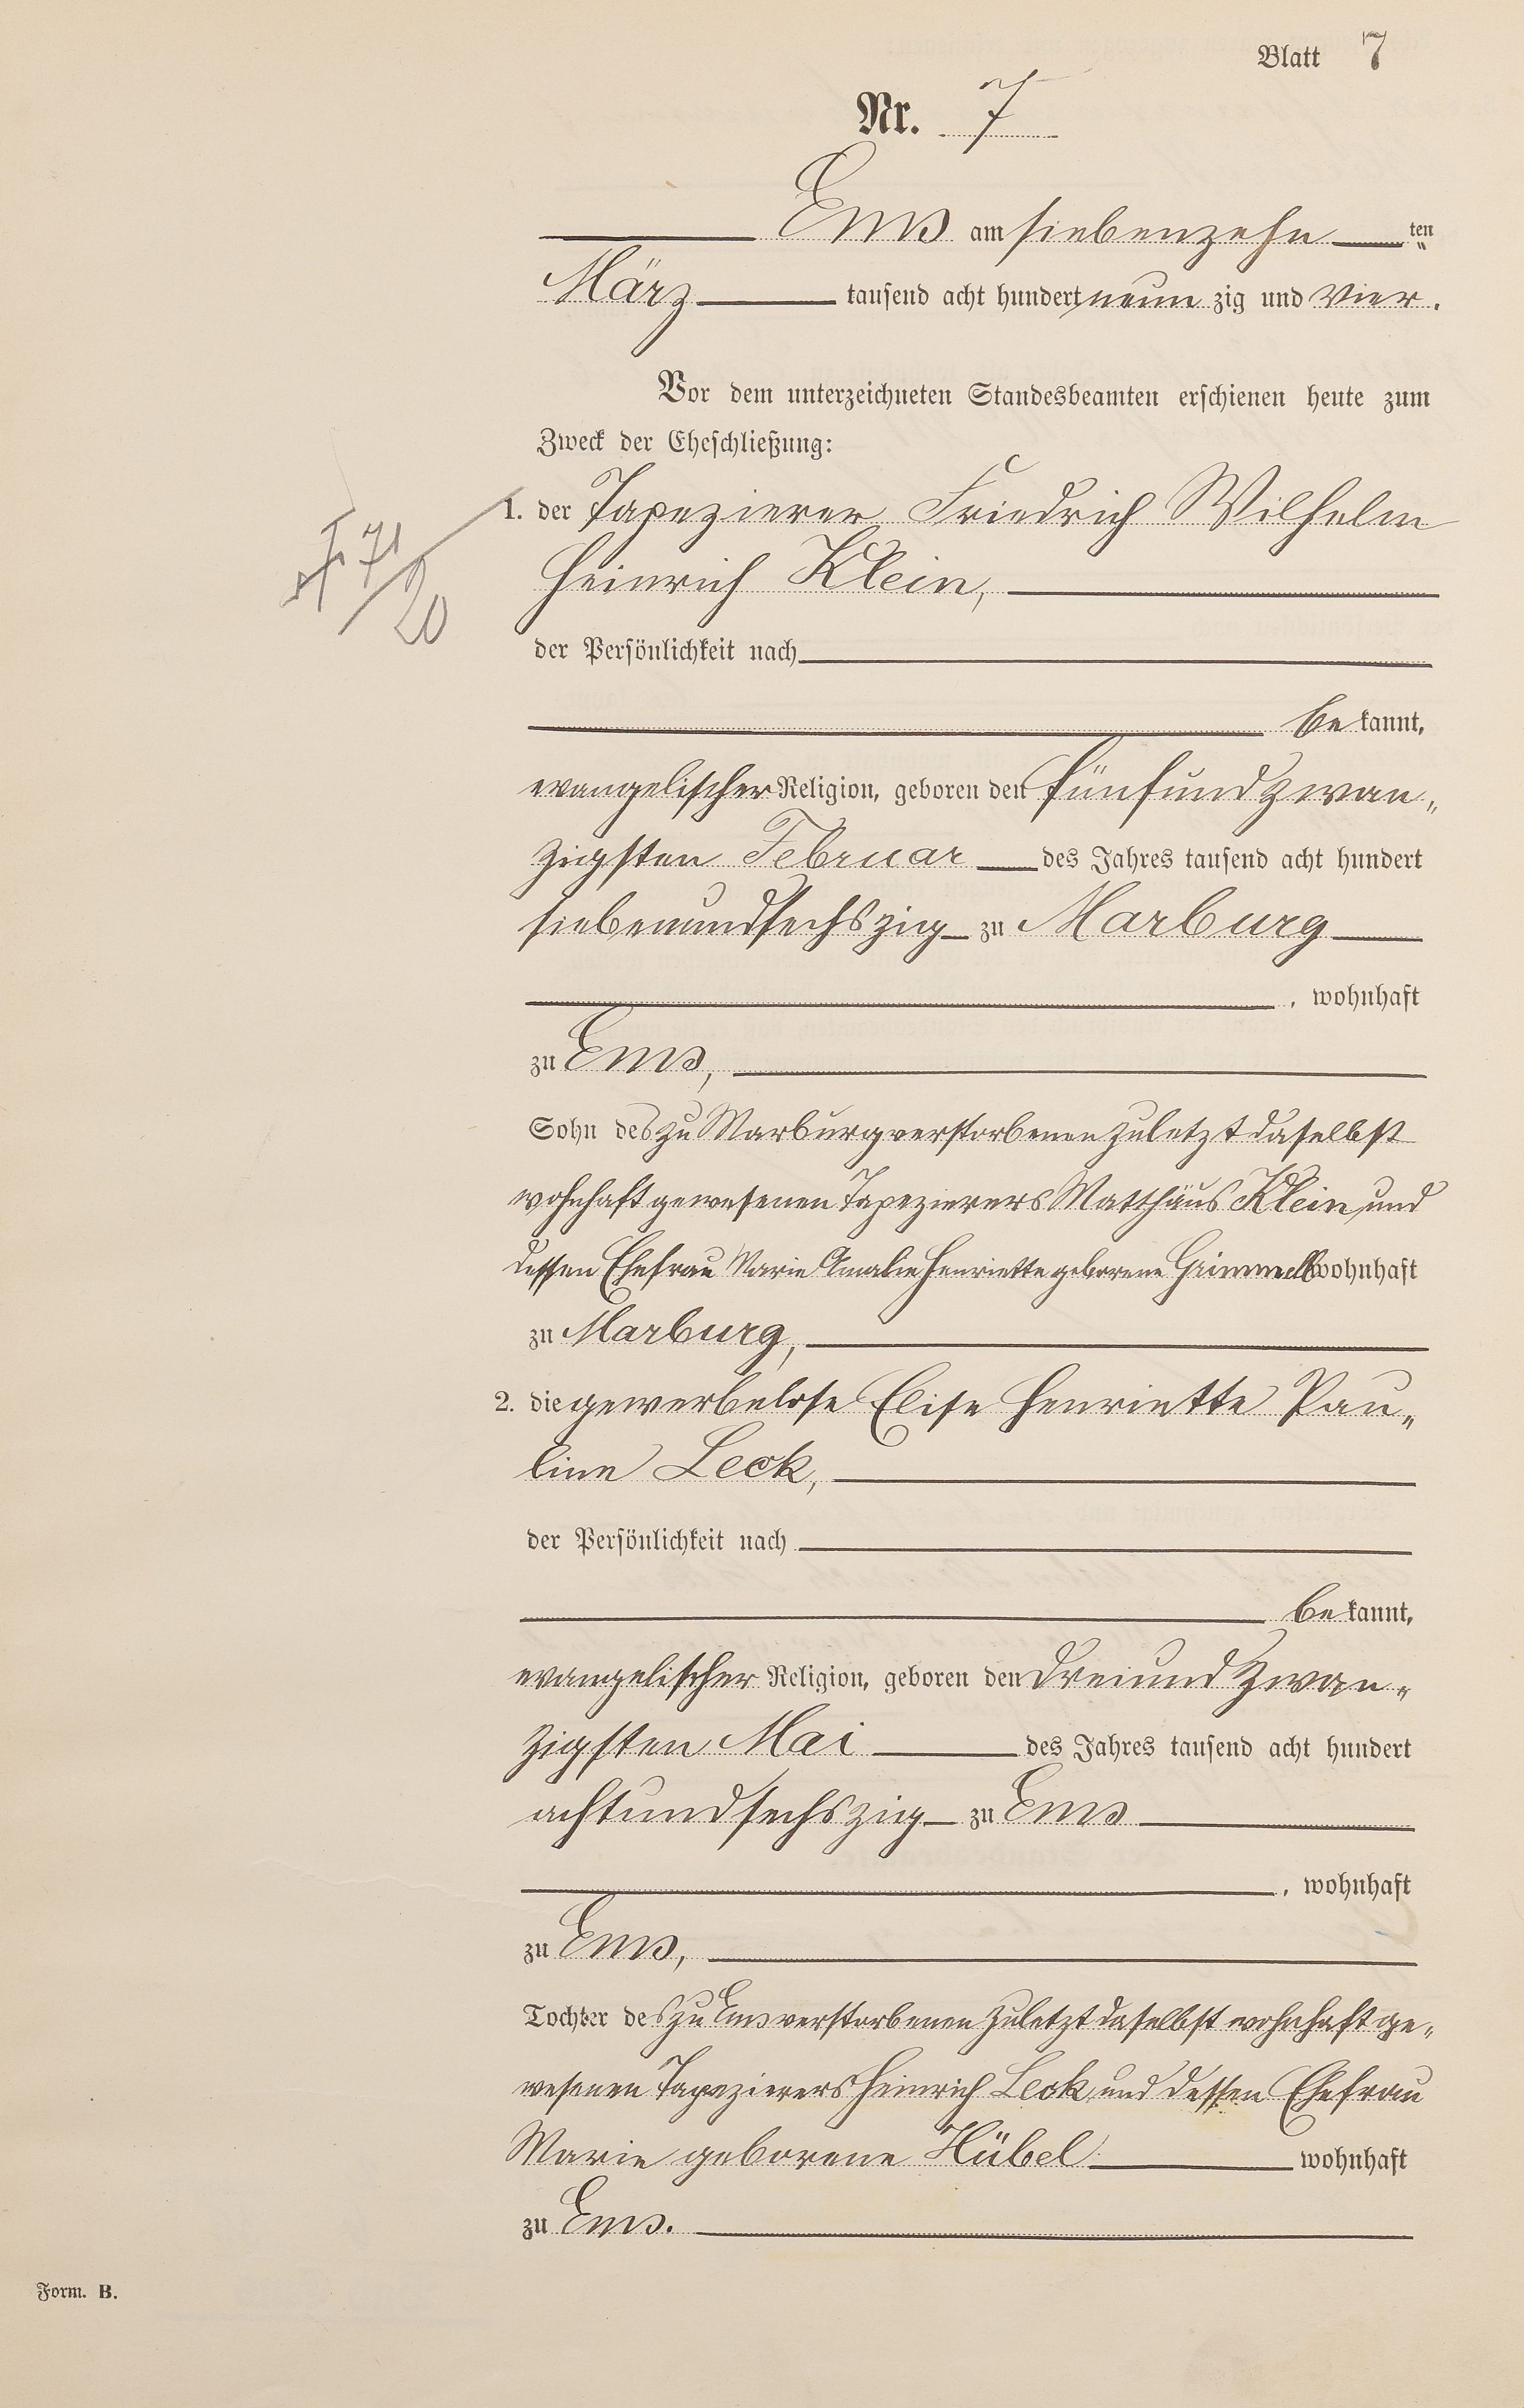 Blatt 7
Nr. 7
Ems am siebenzehn ten
März tausend acht hundert neun zig und vier.
Vor dem unterzeichneten Standesbeamten erschienen heute zum
Zweck der Eheschließung:
1. der Tapezierer Friedrich Wilhelm
Heinrich Klein,
der Persönlichkeit nach
be kannt,
evangelischer Religion, geboren den fünfundzwan„
zigsten Februar des Jahres tausend acht hundert
siebenundsechszig zu Marburg
, wohnhaft
zu Ems,
Sohn des zu Marburg verstorbenen zuletzt daselbst
wohnhaft gewesenen Tapezierers Matthäus Klein und
dessen Ehefrau Marie Amalie Henriette geborene Grimmell wohnhaft
zu Marburg,
2. die gewerbelose Elise Henriette Pau„
line Leck,
der Persönlichkeit nach
be kannt,
evangelischer Religion, geboren den dreiundzwan„
zigsten Mai des Jahres tausend acht hundert
achtundsechszig zu Ems
, wohnhaft
zu Ems,
Tochter des zu Ems verstorbenen zuletzt daselbst wohnhaft ge„
wesenen Tapezierers Heinrich Leck und dessen Ehefrau
Marie geborene Hübel wohnhaft
zu Ems.
Form. B.